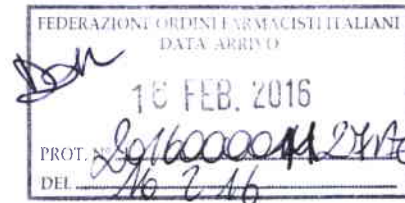 FEDERAZIONE ORDINI FARMACISTI ITALIANI
DATA ARRIVO
16 FEB. 2016
PROT. N°
DEL 16 2 16